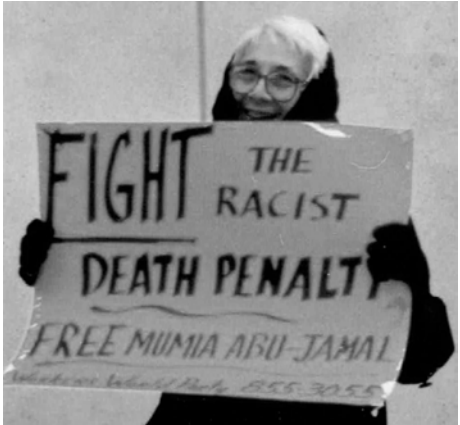 FIGHT THE
RACIST
DEATH PENALTY
FREE MUMIA ABU-JAMAL
Workers World Party 855-3055